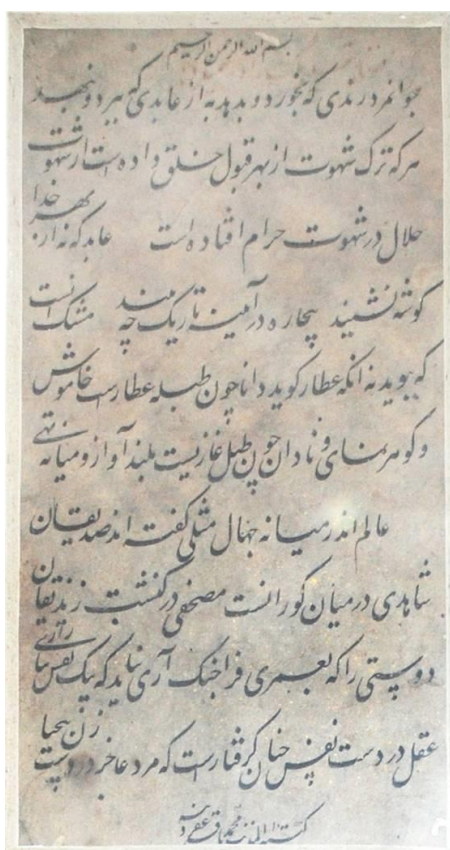 بسم الله الرحمن الرحیم
جوانمرد رندی که بخورد و بدهد به از عابدی که ببرد و بنهد
هرکه ترک شهوت از بهر قبول خلق داده است از شهوت
حلال در شهوت حرام افتاده است عابد که نه از بهر خدا
گوشه نشیند بیچاره در آمینه تاریک چه بیند مشک آنست
که ببوید نه آنکه عطار گوید دانا چون طبله عطارست خاموش
و گوهرنمای و نادان چون طبل غازیست بلند آواز و میانه تهی
عالم اندر میانه جهال مثلی گفته اند صدیقان
شاهدی در میان کورانست مصحفی در کنشت زندیقان
دوستی را که بعمری فراچنک آری نباید که بیک نفس بیازاری
عقل در دست نفس چنان گرفتارست که مرد عاجز در دست زن
کتبه المذنب محمد باقر